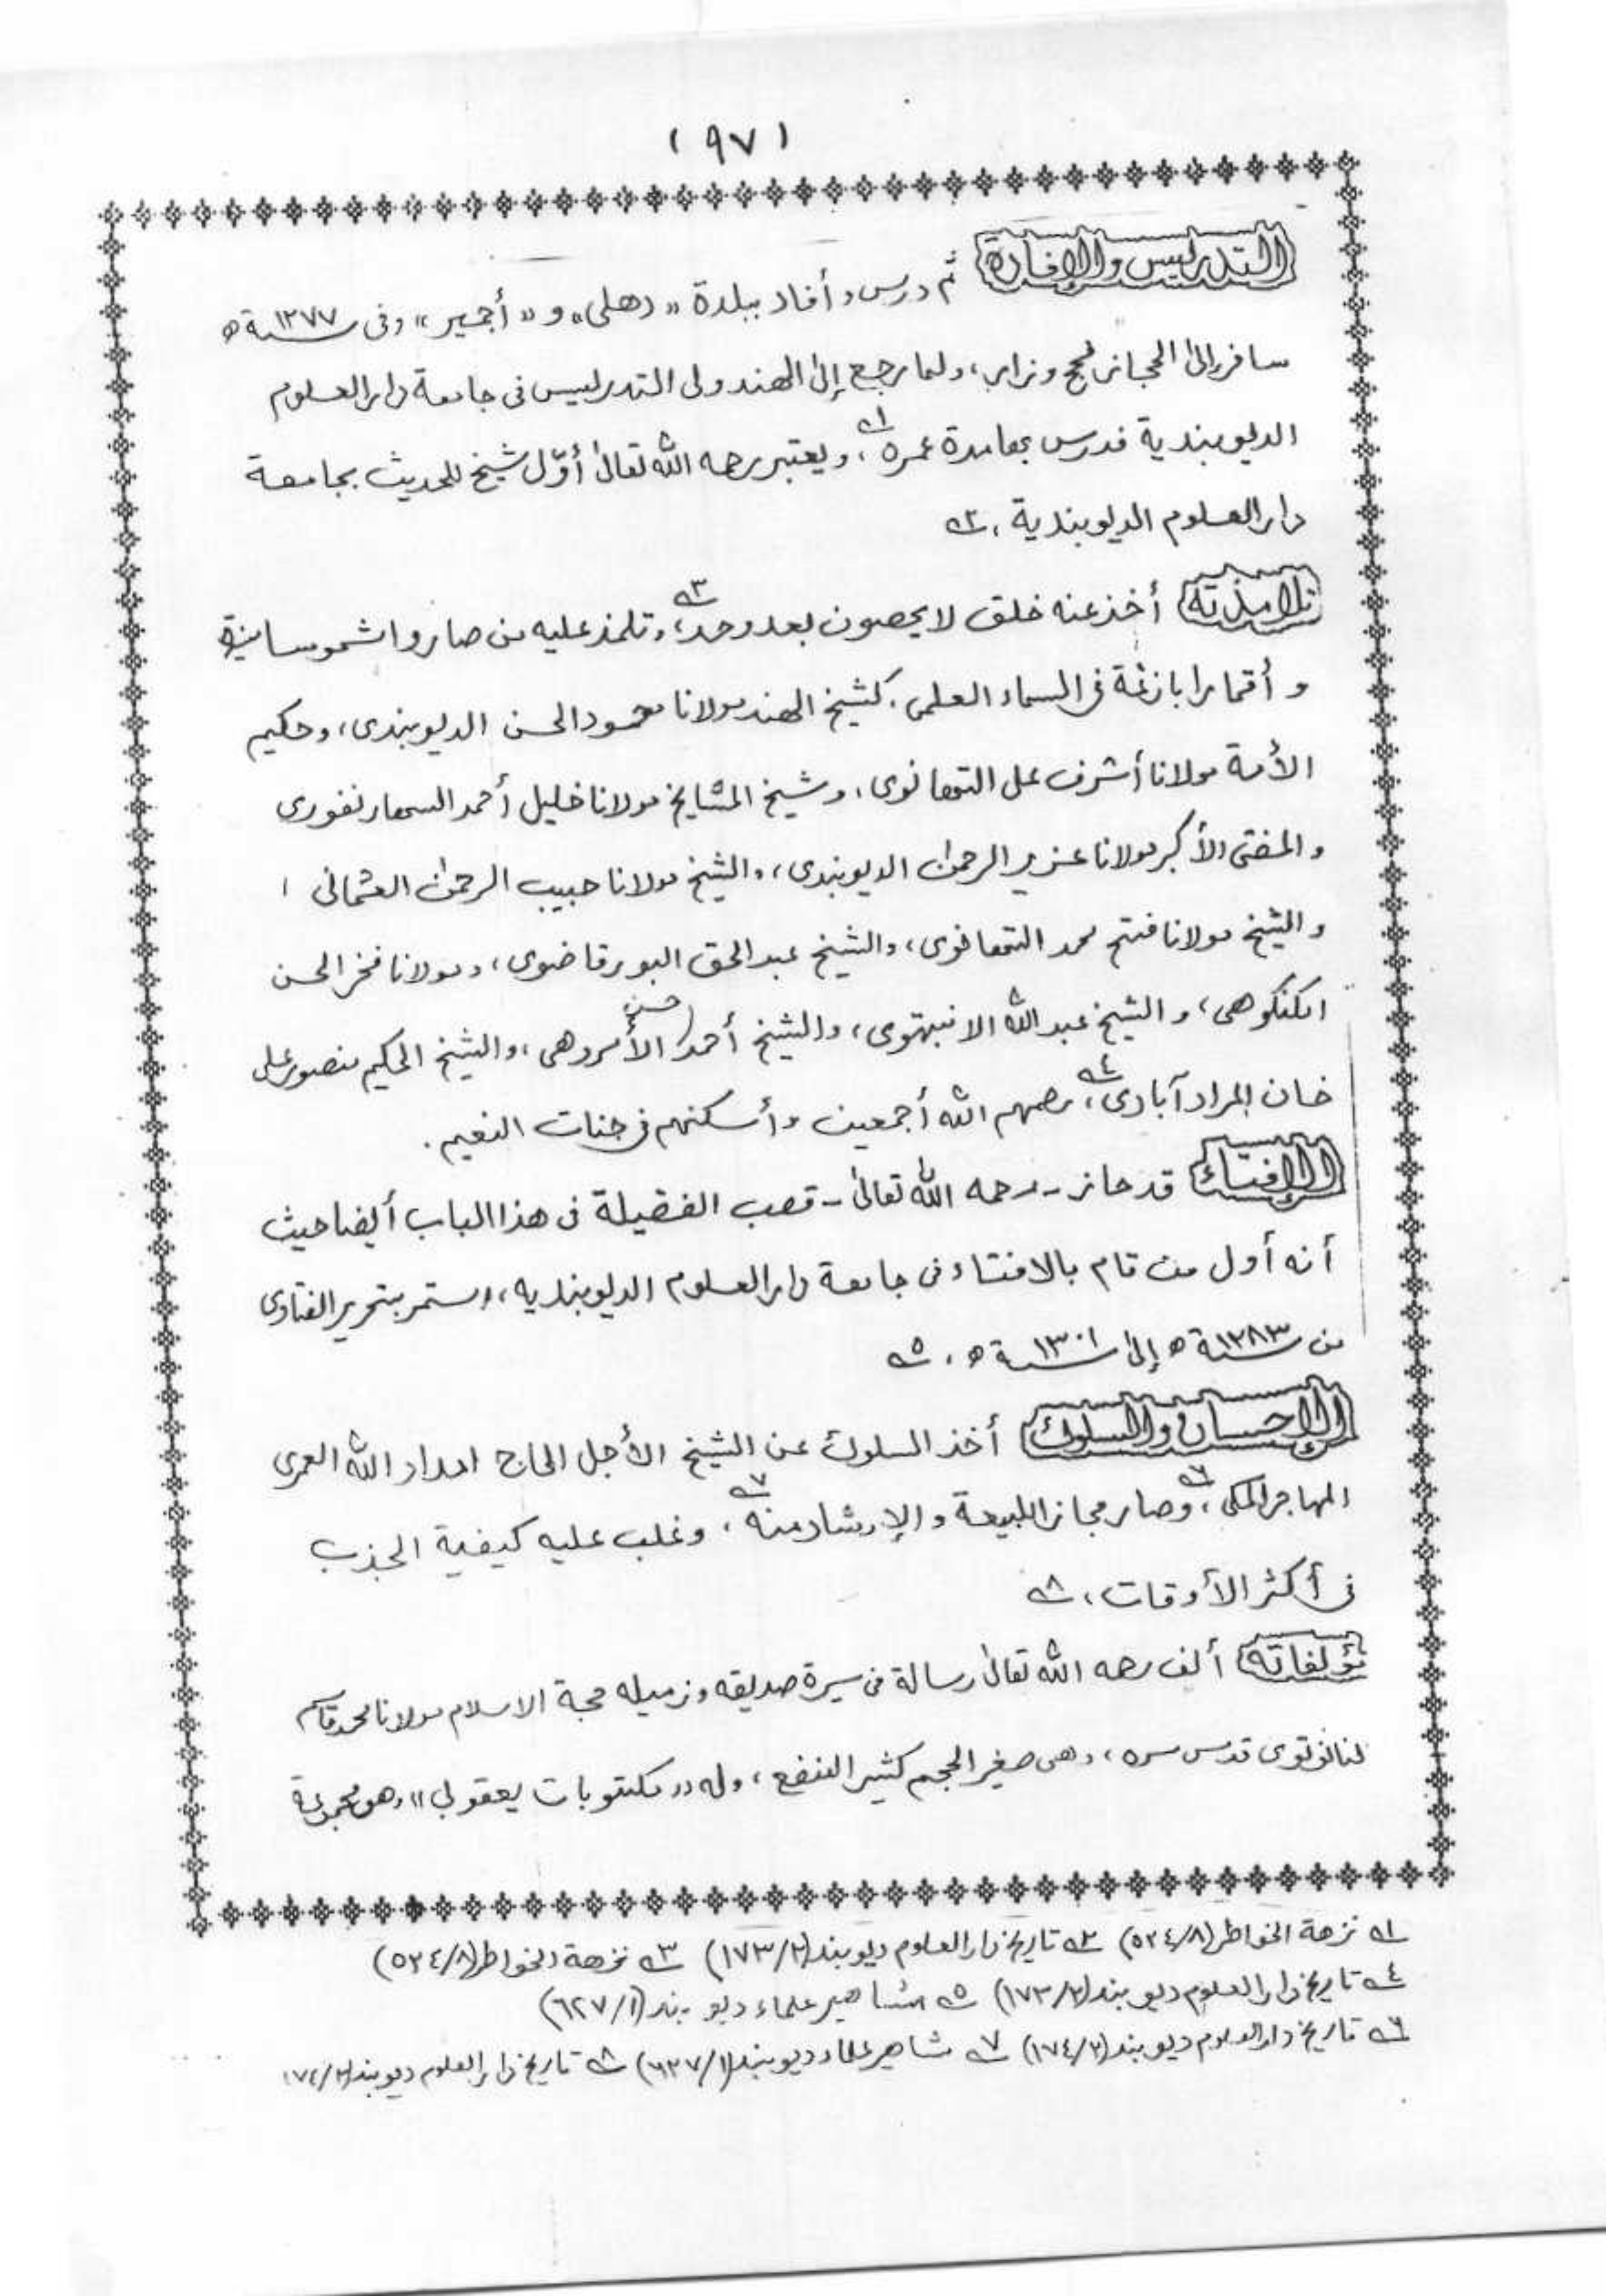 (٩٧)
التدريس والإفادة ثم درس وأفاد ببلدة «دهلى» و«أجمير» وفى سنة ١٢٧٧ھ
سافر إلى الحجاز فحج وزار، ولما رجع إلى الهند ولى التدريس فى جامعة دار العلوم
الديوبندية فدرس بها مدة عمره ؂١، ويعتبر رحمه الله تعالىٰ أوّل شيخ للحديث بجامعة
دار العلوم الديوبندية. ؂٢
تلامذته أخذ عنه خلق لا يحصون بعد وحد ؂٣، وتلمذ عليه من صاروا شموسا منيرة
و أقمارا بازغة فى السماء العلمى. كشيخ الهند مولانا محمود الحسن الديوبندى، وحكيم
الأمة مولانا أشرف على التهانوى، وشيخ المشايخ مولانا خليل أحمد السهارنفورى
والمفتى الأكبر مولانا عزيز الرحمٰن الديوبندى، والشيخ مولانا حبيب الرحمٰن العثمانى،
والشيخ مولانا فتح محمد التهانوى، والشيخ عبد الحق البورقاضوى، ومولانا فخر الحسن
الكنكوهى، والشيخ عبد الله الانبهتوى، والشيخ أحمد حسن الأمروهى، والشيخ الحكيم منصور على
خان المراد آبادى ؂٤، رحمهم الله أجمعين وأسكنهم فى جنات النعيم.
الإفتاء قد حاز - رحمه الله تعالىٰ - قصب الفضيلة فى هذا الباب أيضا حيث
أنه أول من قام بالافتاء فى جامعة دار العلوم الديوبنديه، واستمر بتحرير الفتاوى
من سنة ١٢٨٣ھ إلىٰ سنة ١٣٠١ھ. ؂٥
الإحسان والسلوك أخذ السلوك عن الشيخ الأجل الحاج امداد الله العمرى
المهاجر المكى ؂٦، وصار مجازا للبيعة والإرشاد منه ؂٧، وغلب عليه كيفية الجذب
فى أكثر الأوقات، ؂٨
مؤلفاته ألف رحمه الله تعالىٰ رسالة فى سيرة صديقه وزميله حجة الاسلام مولانا محمد قاسم
لنانوتوى قدس سره، وهى صغير الحجم كثير النفع، وله «مكتوبات يعقوبى» وهى مجموعة
؂١ نزهة الخواطر (٥٢٤/٨) ؂٢ تاريخ دار العلوم ديوبند (١٧٣/٢) ؂٣ نزهة الخواطر (٥٢٤/٨)
؂٤ تاريخ دار العلوم ديوبند (١٧٣/٢) ؂٥ مشاهير علماء ديوبند (٦٢٧/١)
؂٦ تاريخ دار العلوم ديوبند (١٧٤/٢) ؂٧ مشاهير علماء ديوبند (٦٢٧/١) ؂٨ تاريخ دار العلوم ديوبند (١٧٤/٢